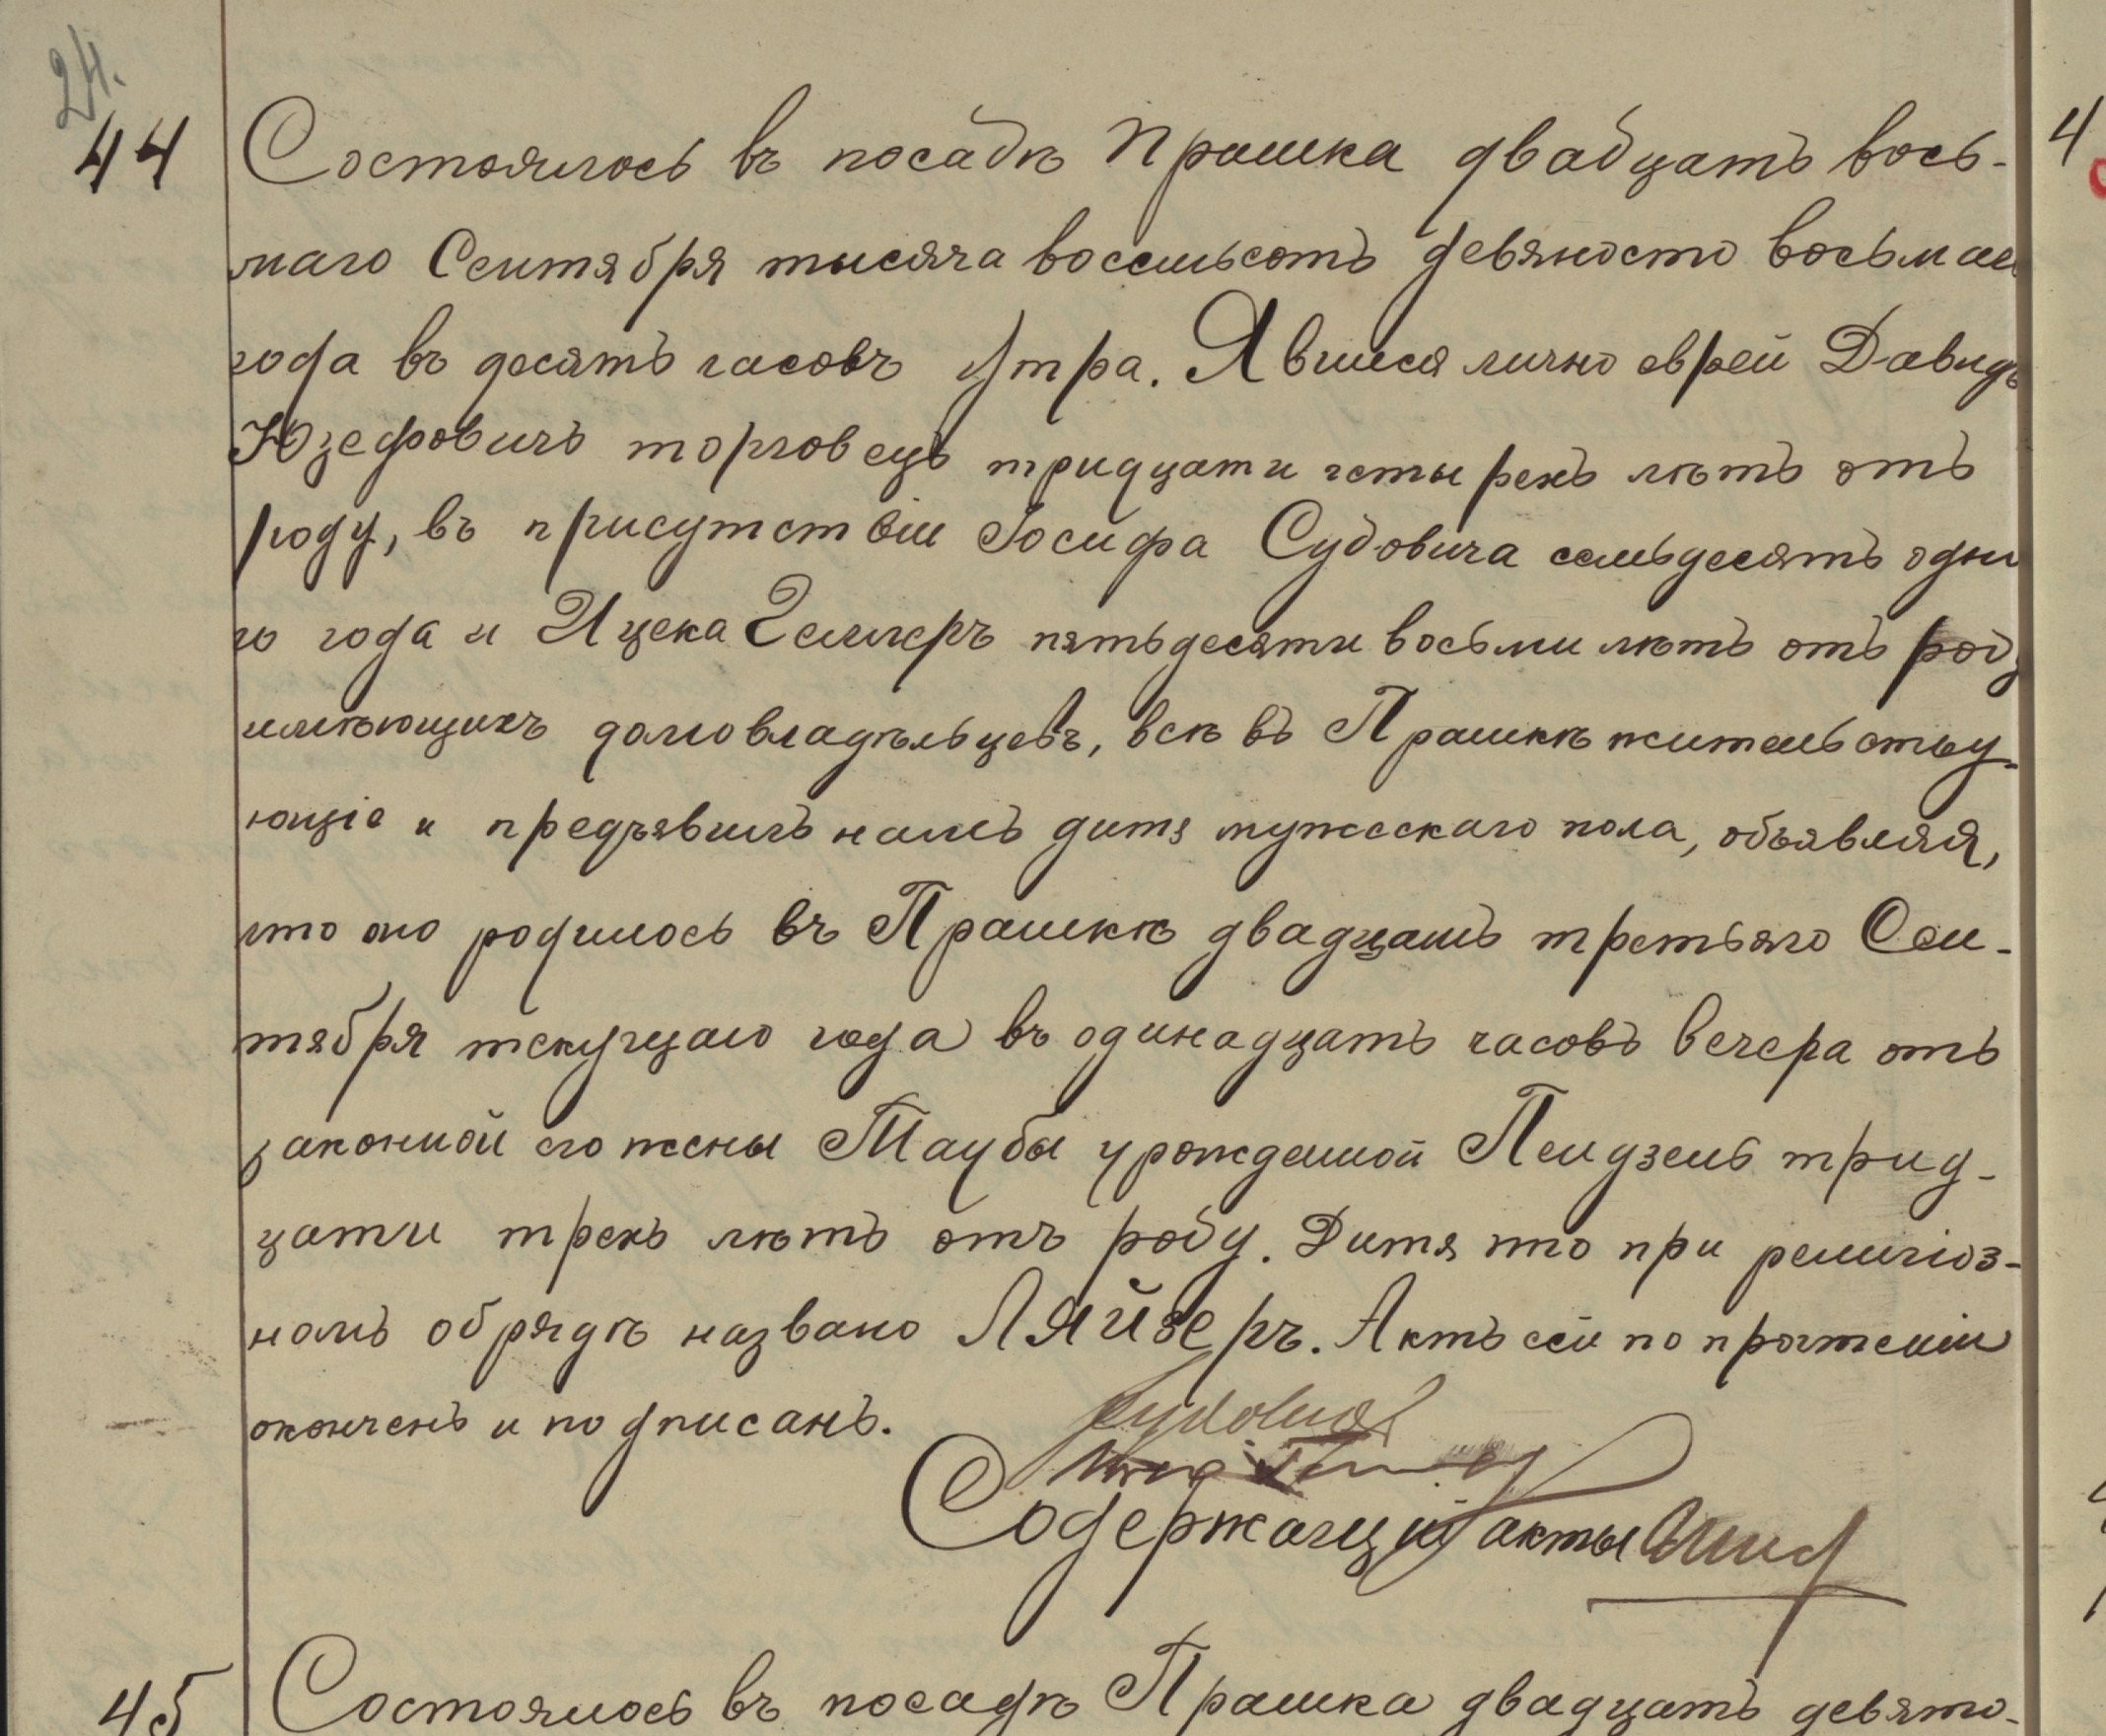 24.
44 Состоялось въ посадѣ Прашка двадцать вось-
маго Сентября тысяча восемьсотъ девяносто восьмаго
года въ десять часовъ утра. Явился лично еврей Давидъ
Юзефовичъ торговецъ тридцати четырехъ лѣтъ отъ
роду, въ присутствіи Іосифа Судовича семьдесятъ одно
го года и Ицека Геллеръ пятьдесяти восьми лѣтъ отъ роду
имѣющихъ домовладѣльцевъ, всѣ въ Прашкѣ жительству-
ющіе и предъявилъ намъ дитя мужескаго пола, объявляя,
что оно родилось въ Прашкѣ двадцать третьяго Сен-
тября текущаго года въ одинадцать часовъ вечера отъ
законной его жены Таубы урожденной Пендзель трид-
цати трехъ лѣтъ отъ роду. Дитя это при религіоз-
номъ обрядѣ названо Ляйзеръ. Актъ сей по прочтеніи
оконченъ и подписанъ.
Содержащій акты
45 Состоялось въ посадѣ Прашка двадцать девято-
4